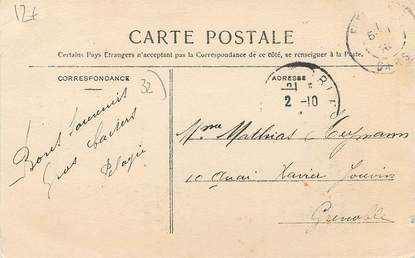 12€
CARTE POSTALE
Certains Pays Etrangers n'acceptant pas la Correspondance de ce côté, se renseigner à la Poste.
CORRESPONDANCE
32
ADRESSE
21
2 -10
Bons Souvenirs
Gros baisers
Pélagie
Mme Mathias
10 Quai Xavier Jouvin
Grenoble